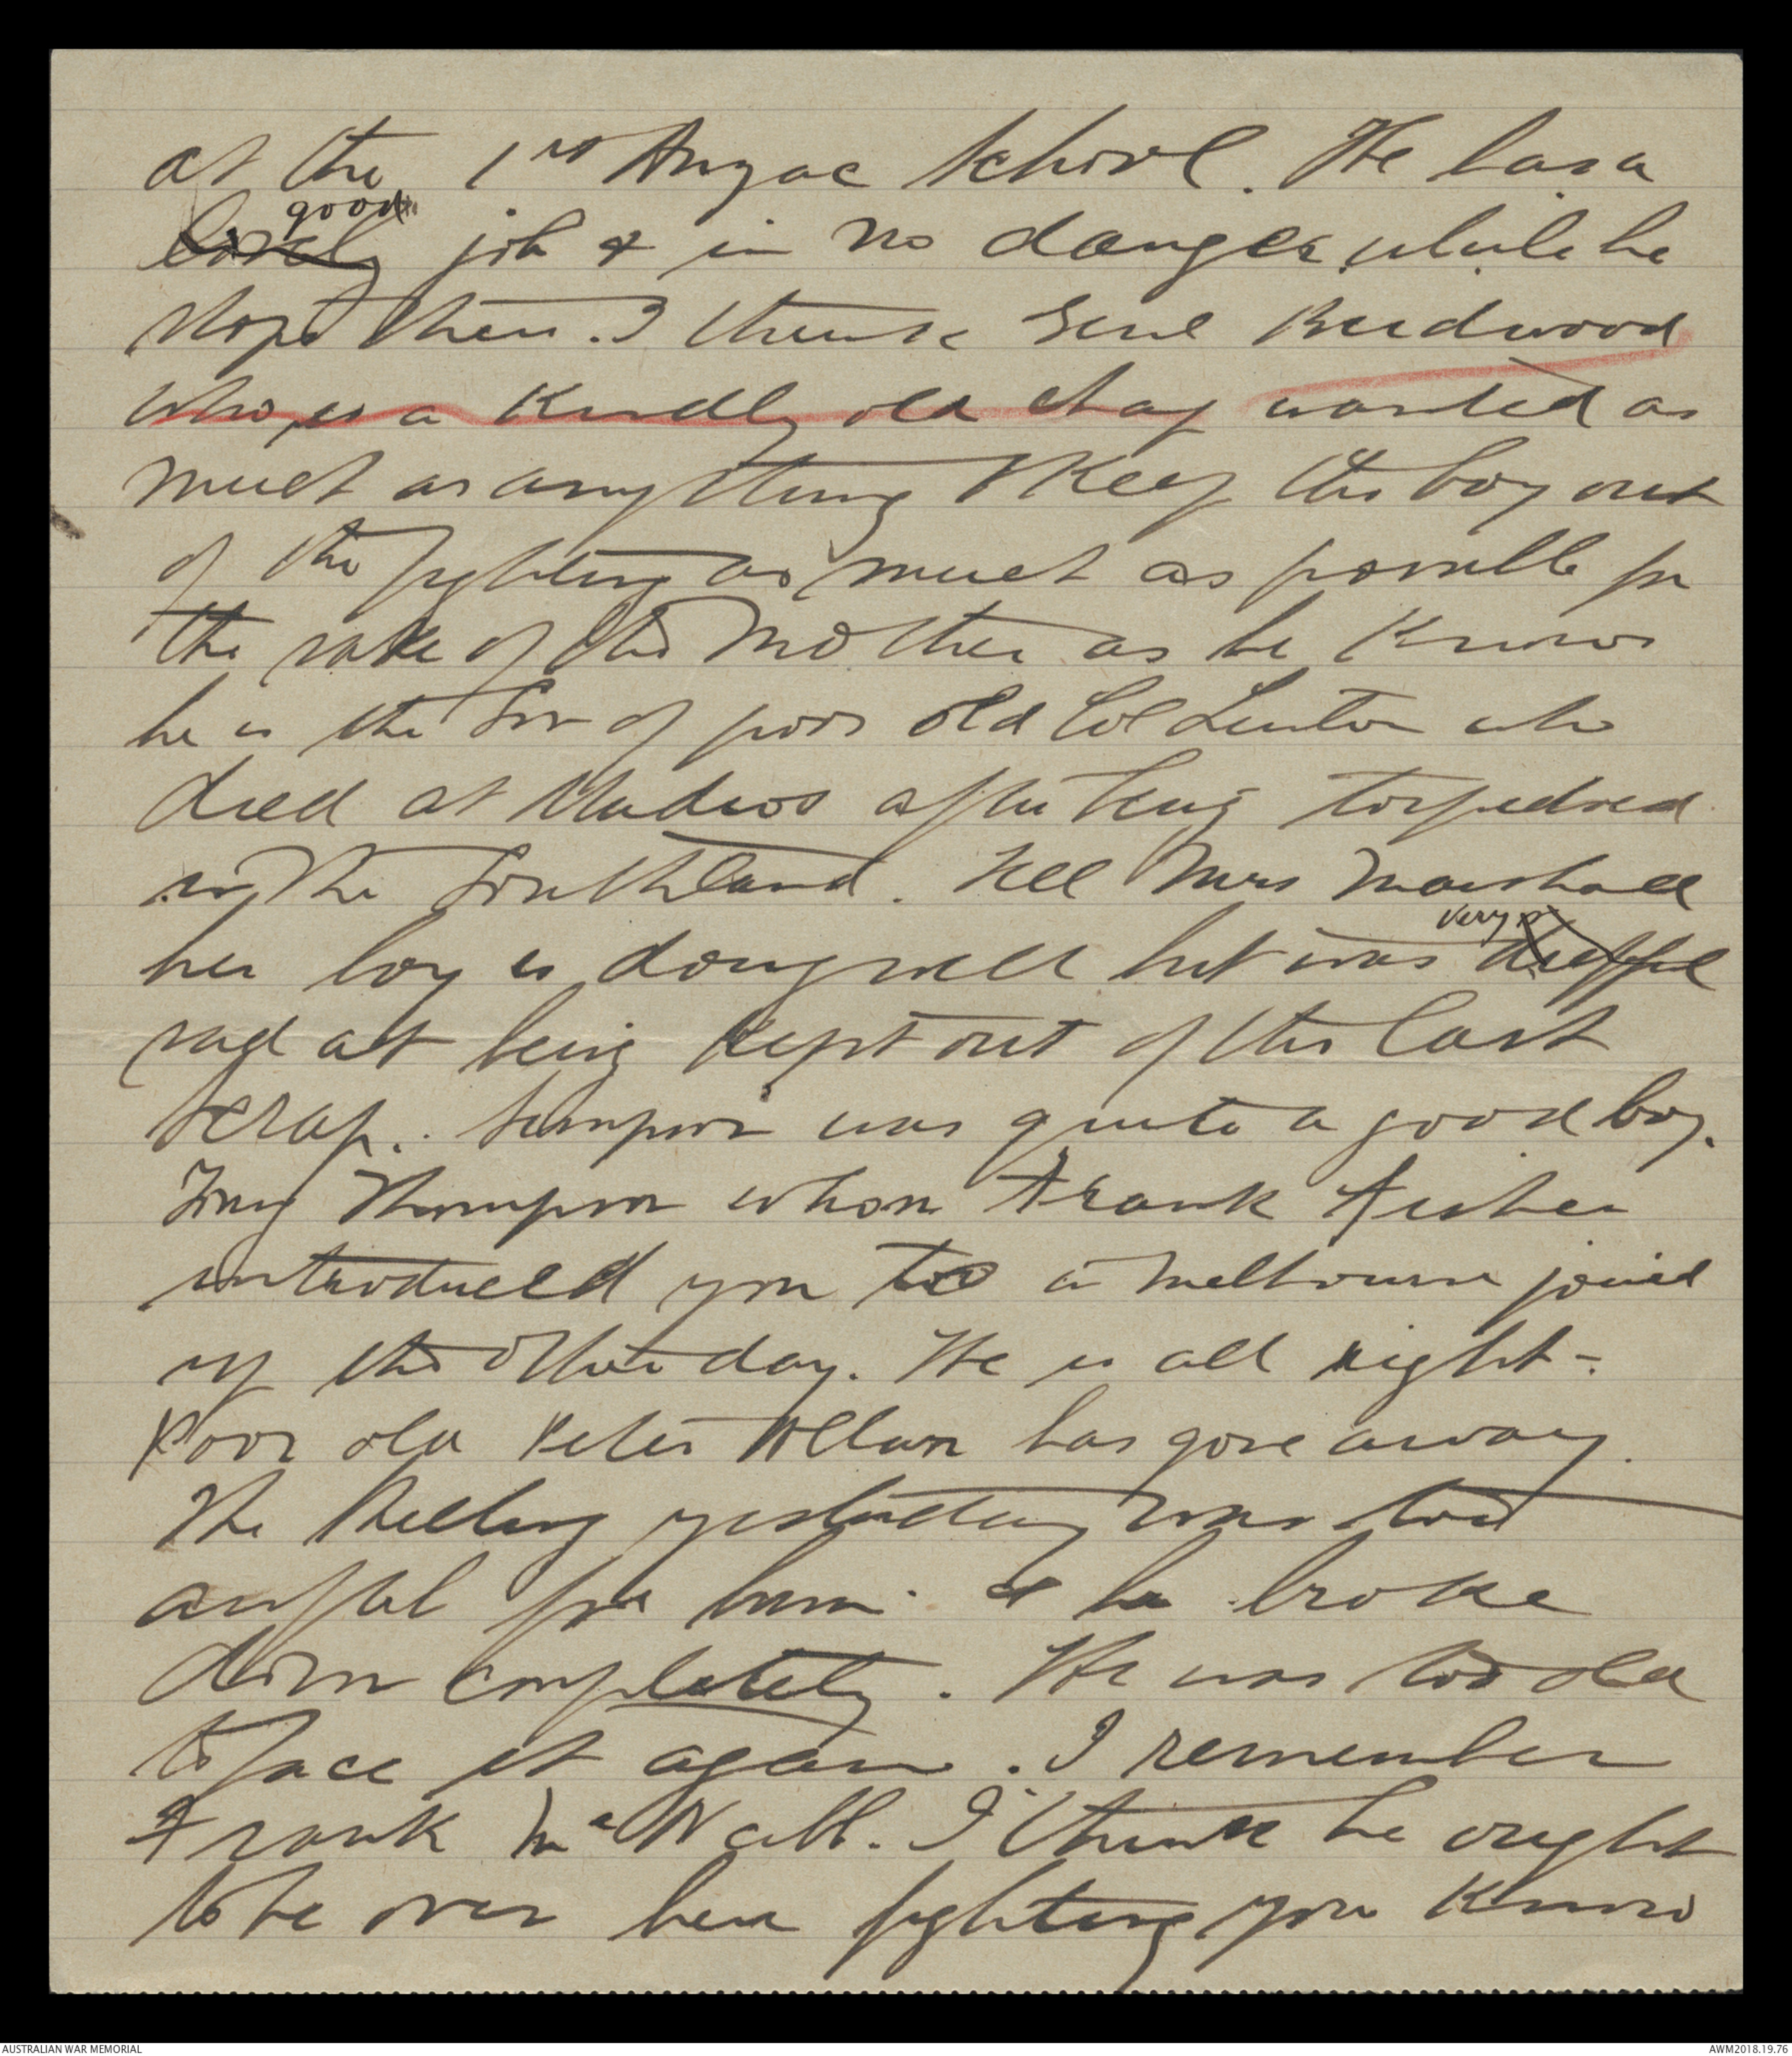 at the 1st Anzac School. He has a
good
lovely job & in no danger while he
stops there. I think Genl Birdwood
who is a kindly old chap wanted as
much as anything to keep the boy out
of the fighting as much as possible for
the sake of the Mother as he knows
he is the Son of poor old Col Linton who
died at Mudros after being torpedoed
in the Southland. Tell Mrs Marshall
very
her boy is doing well but was
sad at being kept out of the last
scrap. Simpson was quite a good boy.
Thompson whom Frank Fisher
introduced you to in Melbourne joined
up the other day. He is all right -
Poor old Peter Allan has gone away.
The shelling yesterday was too
awful for him & he broke
down completely. He was too old
to face it again. I remember
Frank McNabb. I think he ought
to be over here fighting you know
AUSTRALIAN WAR MEMORIAL
AWM2018.19.76